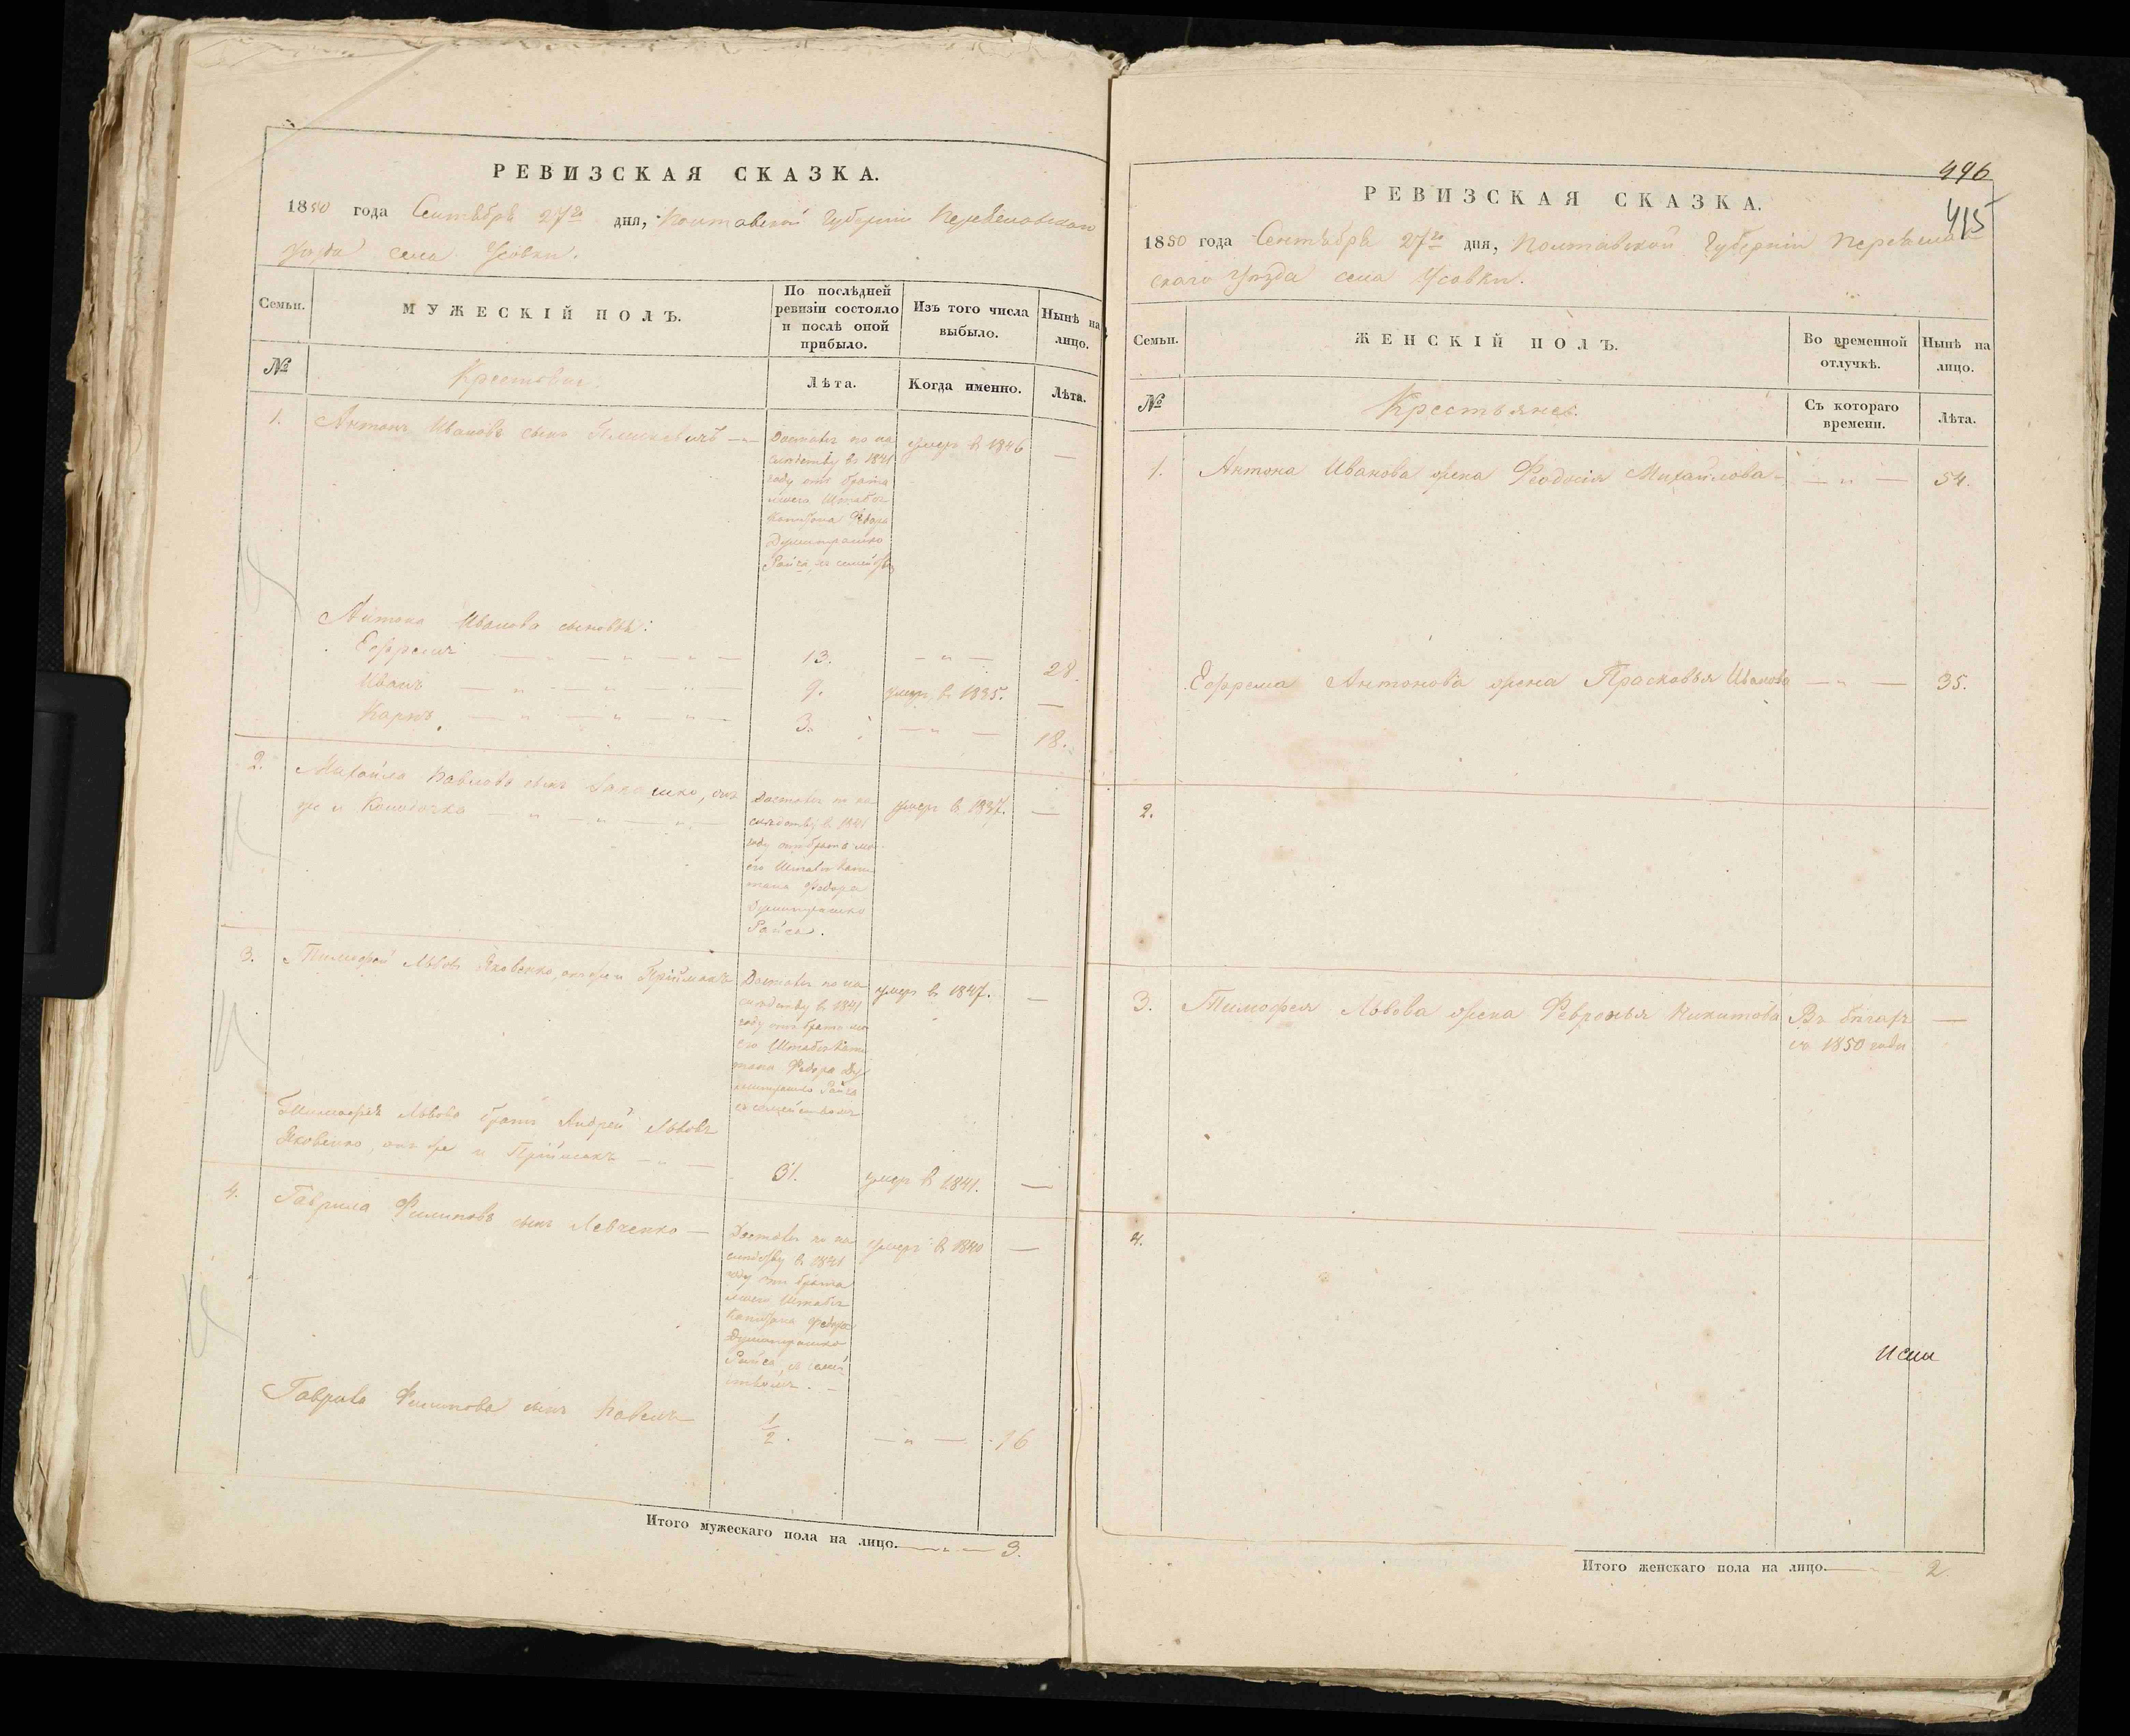 РЕВИЗСКАЯ СКАЗКА.
1850 года Сентября 27го дня, Полтавской Губерніи Переяславскаго
уѣзда села Усовки.
Семьи.
МУЖЕСКІЙ ПОЛЪ.
По послѣдней
ревизіи состояло
и послѣ оной
прибыло.
Изъ того числа
выбыло.
Нынѣ на
лицо.
№
Крестьяне.
Лѣта.
Когда именно.
Лѣта.
1. Антонъ Ивановъ сынъ
Достался по на
слѣдству въ 1841
году отъ брата
моего Штабсъ
Капитана Федора
Думитрашко
Райса, съ семейств.
умеръ въ 1846
—
Антона Иванова сыновья:
Ефремъ — " — " — " — 13. — " — 28.
Иванъ — " — " — " 9. умеръ въ 1835. —
Карпъ — " — " — " — 3. — " — 18.
2. Михайло Павловъ сынъ онъ
же и — " — " — " —
Достался по на
слѣдству въ 1841
году отъ брата мо
его Штабсъ Капи
тана Федора
Думитрашко
Райса.
умеръ въ 1837. —
3. Тимофей Львовъ Яковенко, онъ же и Пріймакъ
Достался по на
слѣдству въ 1841
году отъ брата мо
его Штабсъ Капи
тана Федора Ду
митрашко Райса
съ семействомъ
умеръ въ 1847. —
Тимофея Львова братъ Андрей Львовъ
Яковенко, онъ же и Пріймакъ — " —
31. умеръ въ 1841. —
4. Гаврила Филиповъ сынъ Левченко —
Достался по на
слѣдству въ 1841
году отъ брата
моего Штабсъ
Капитана Федора
Думитрашко
Райса, съ семей
ствомъ. —
умеръ въ 1840 —
Гаврила Филипова сынъ Павелъ
1/2. — " — 16
Итого мужескаго пола на лицо. 3.
496
415
РЕВИЗСКАЯ СКАЗКА.
1850 года Сентября 27го дня, Полтавской Губерніи Переяслав
скаго уѣзда села Усовки.
Семьи.
ЖЕНСКІЙ ПОЛЪ.
Во временной
отлучкѣ.
Нынѣ на
лицо.
№
Крестьяне.
Съ котораго
времени.
Лѣта.
1. Антона Иванова жена Феодосія Михайлова — " — 54.
Ефрема Антонова жена Прасковья Иванова — " — 35.
2.
3. Тимофея Львова жена Февронья Никитова Въ бѣгахъ —
съ 1850 года
4.
Итого женскаго пола на лицо. 2